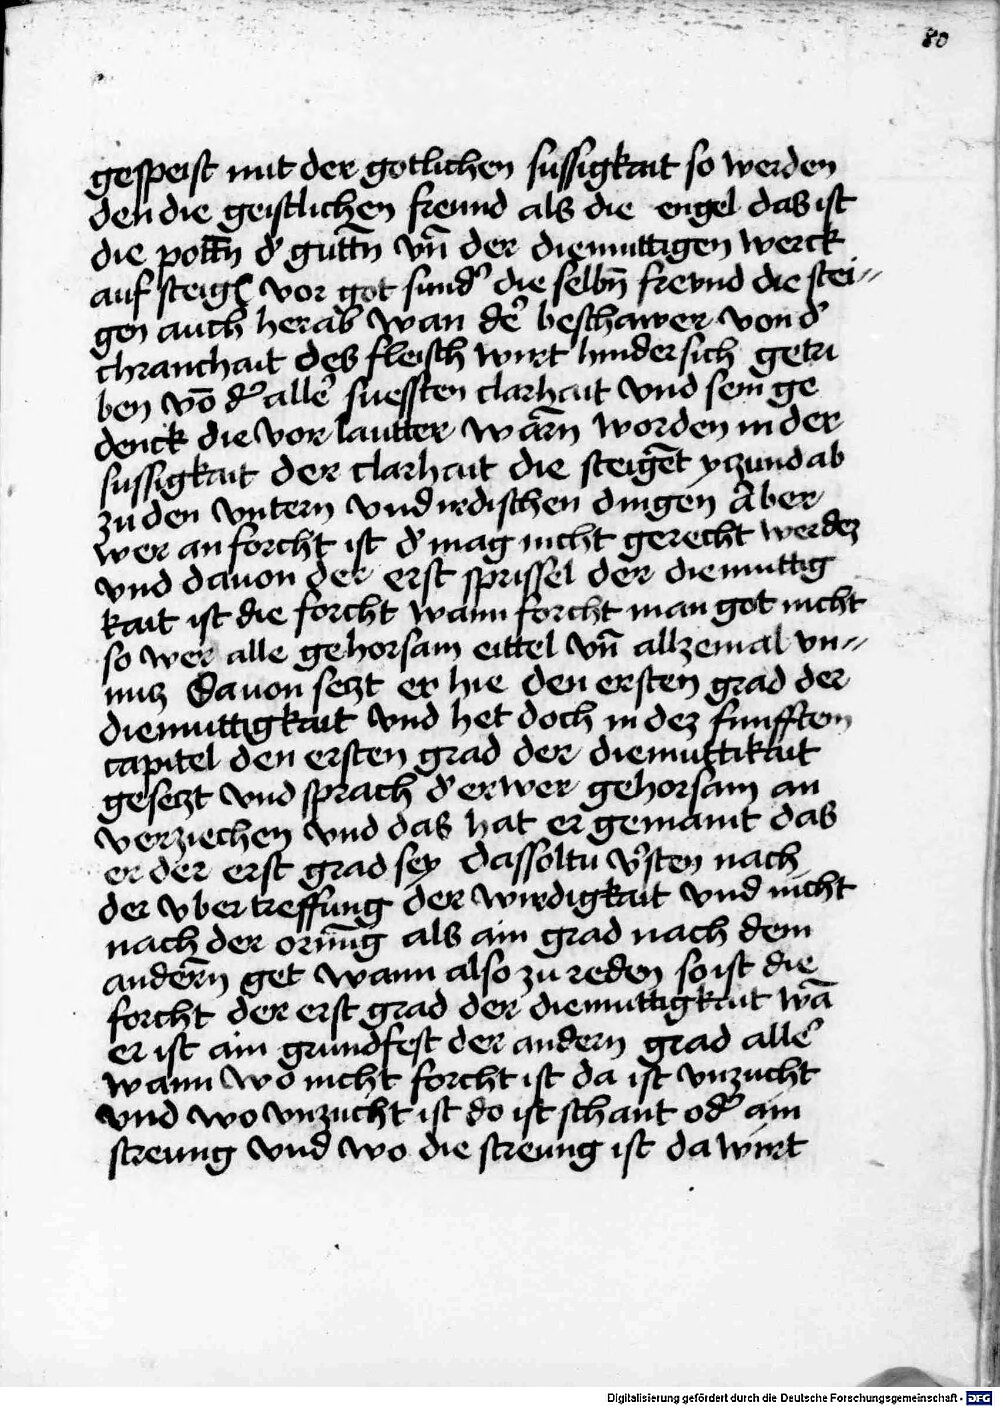 80
gespeist mit der gotlichen sussigkait so werden
den die geistlichen freund als die engel das ist
die pottn̄ dˀ guttn̄ vn̄ der diemuttigen werck
auf steigen vor got sundˀ die selbn̄ freund die stei-
gen auch herab wan deˀ beschawer von dˀ
chranchait des fleisch wirt hindersich getri
ben vō dˀ alleˀ suessten clarhait vnd sein ge
denck die vor lautter wārn worden in der
sussigkait der clarhait die steigēt yczund ab
zu den vntern vnd irdischen dingen Aber
wer an forcht ist dˀ mag nicht gerecht werdez
vnd dauon der erst sprissel der diemuttig
kait ist die forcht wann forcht man got nicht
so wer alle gehorsam eittel vn̄ allzemal vn-
nucz Dauon setzt er hie den ersten grad der
diemuttigkait vnd het doch in dez funfftem
capitel den ersten grad der diemuttikait
gesetzt vnd sprach dˀ er wer gehorsam an
verziechen vnd das hat er gemaint das
er der erst grad sey das soltu vˀsten nach
der vbertreffung der wirdigkait vnd nicht
nach der ornūg als ain grad nach dem
andern̄ get wann also zu reden so ist die
forcht der erst grad der diemuttigkait wā
er ist ain grundfest der andern grad alleˀ
wann wo nicht forcht ist da ist vnzucht
vnd wo vnzucht ist do ist schant odˀ ain
streung vnd wo die streung ist da wirt
Digitalisierung gefördert durch die Deutsche Forschungsgemeinschaft - DFG